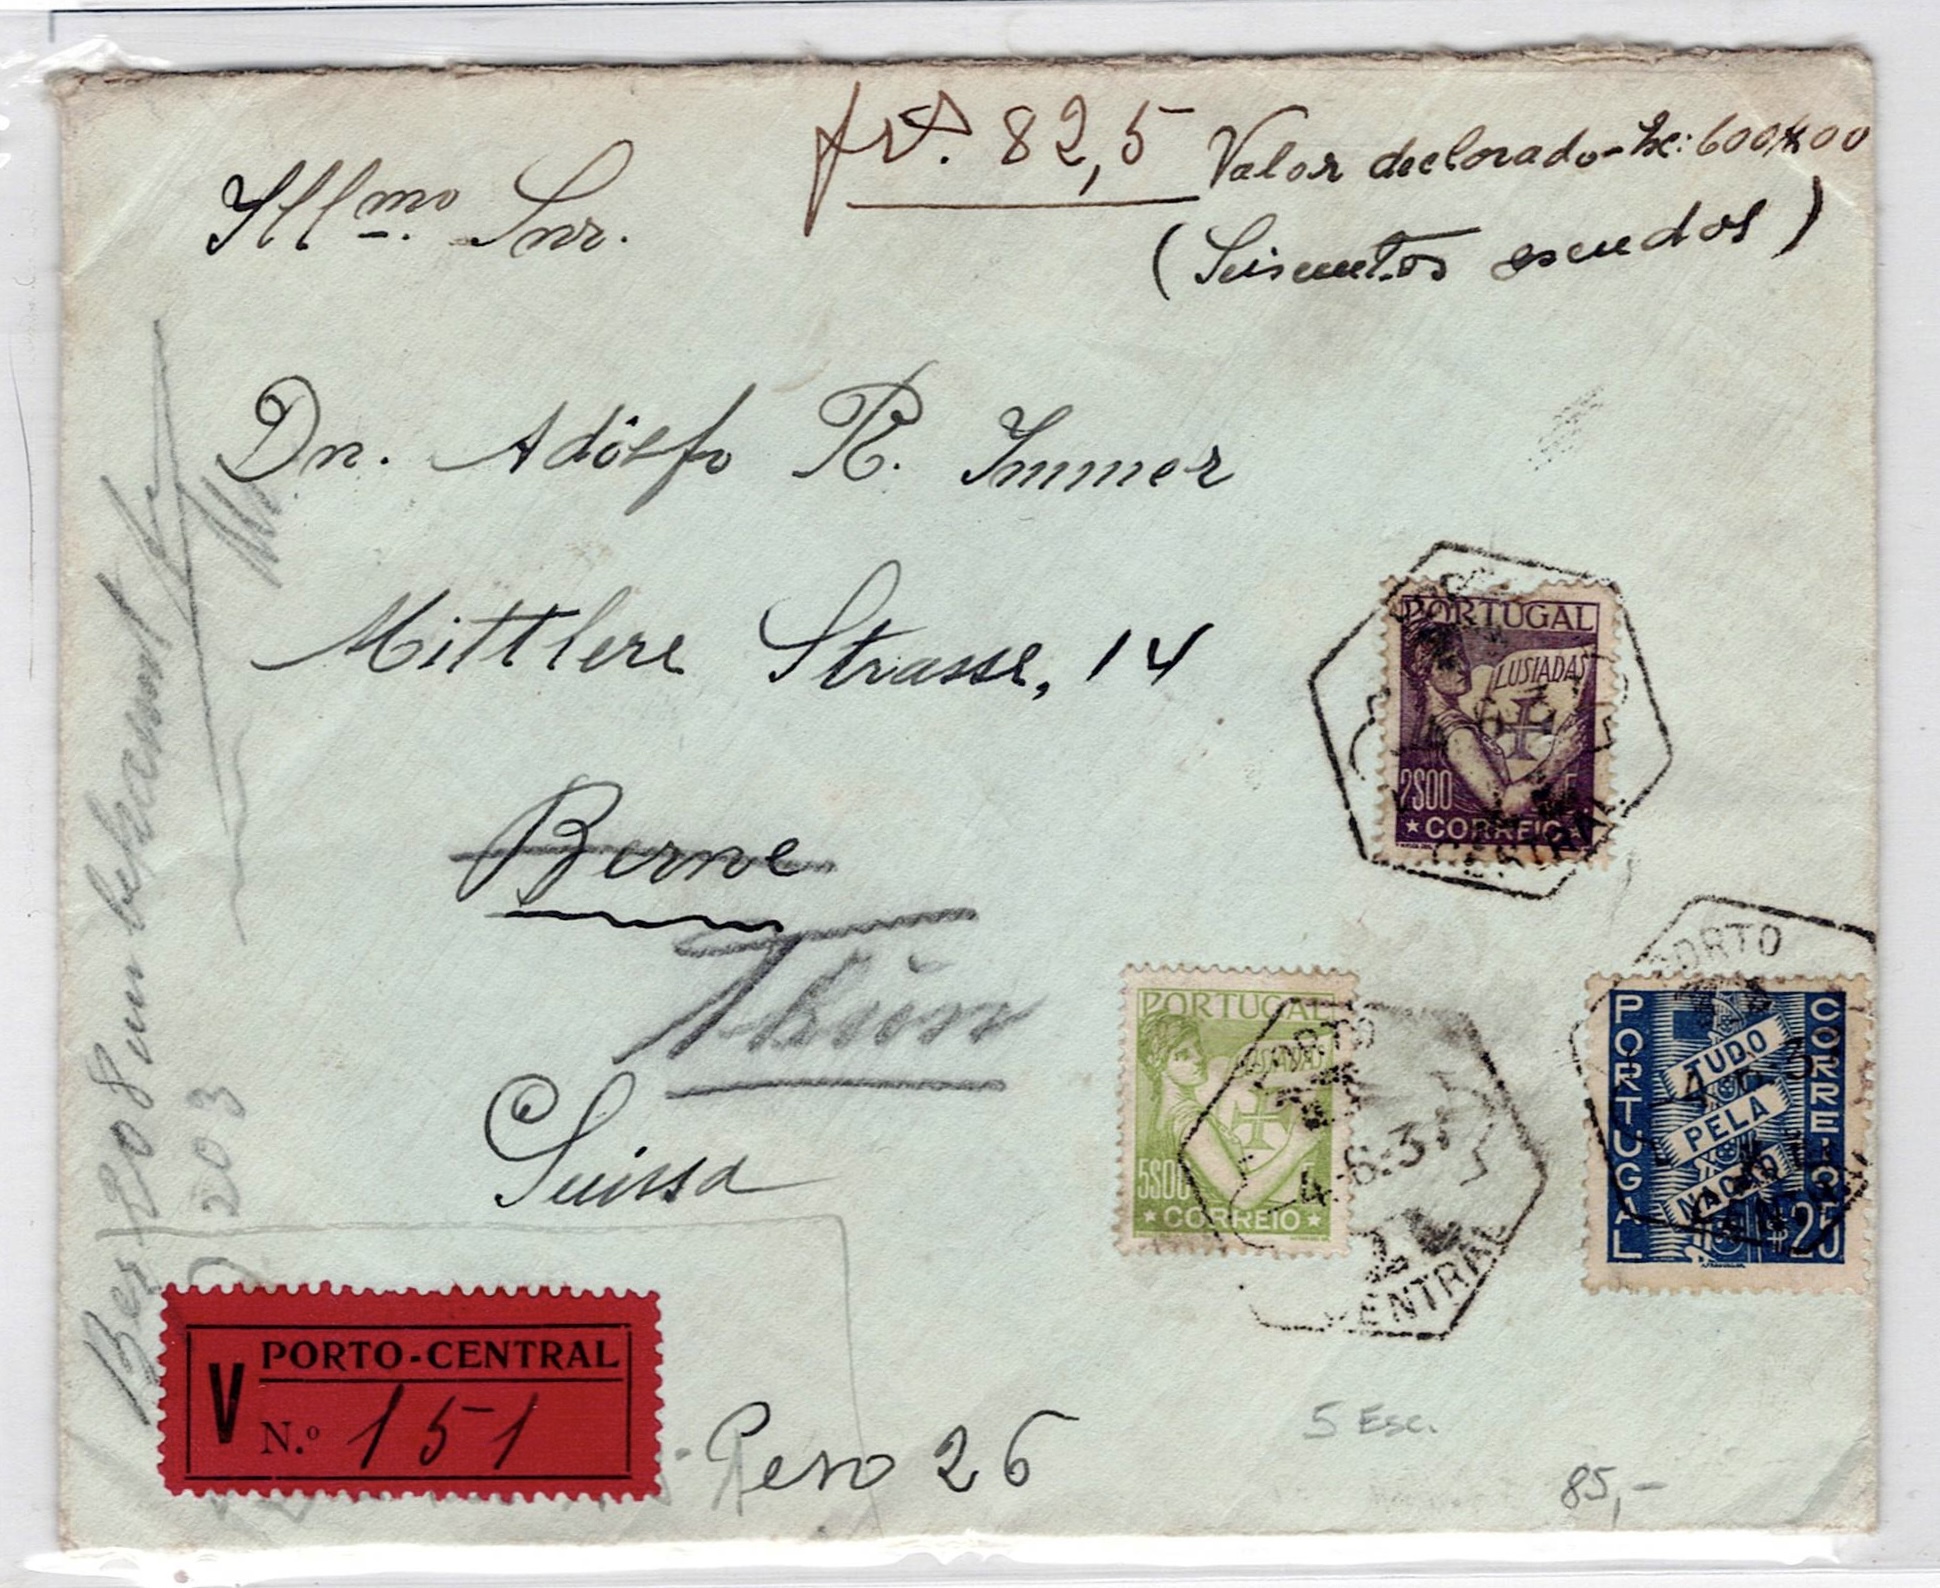 frs. 82,5
Valor declarado - Esc: 600$00
(Seiscentos escudos)
Illmo. Snr.
Dr. Adolfo R. Immer
Mittlere Strasse, 14
Berne
Thun
Suissa
PORTUGAL
LUSIADAS
2$00
CORREIO
CENTRAL
PORTUGAL
LUSIADAS
5$00
CORREIO
PORTO
4.6.37
2
CENTRAL
PORTO
PORTUGAL
CORREIO
TUDO
PELA
NAÇÃO
$25
Bes 208 unbekannt
203
PORTO-CENTRAL
V
N.º 151
Peso 26
5 Esc.
85,-